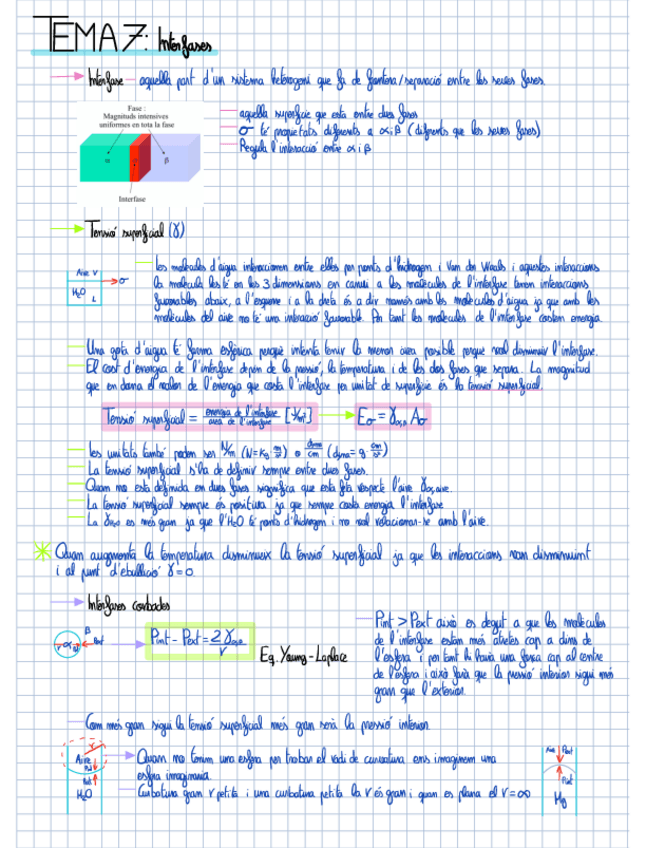 TEMA 7: Interfases
Interfase - aquella part d'un sistema heterogeni que fa de frontera/separació entre les seves fases.
Fase:
Magnituds intensives
uniformes en tota la fase
α
β
Interfase
aquella superfície que esta entre dues fases
σ té propietats diferents a α i β (diferents que les seves fases)
Regula l'interacció entre α i β
Tensió superficial (γ)
Aire V
H₂O L
σ
les molècules d'aigua interaccionen entre elles per ponts d'hidrogen i Van der Waals i aquestes interaccions
la molècula les té en les 3 dimensions en canvi a les molècules de l'interfase tenen interaccions
favorables abaix, a l'esquerra i a la dreta és a dir només amb les molècules d'aigua ja que amb les
molècules del aire no té una interacció favorable. Per tant les molècules de l'interfase costen energia
Una gota d'aigua té forma esfèrica perquè intenta tenir la menor àrea possible perquè vol disminuir l'interfase.
El cost d'energia de l'interfase depèn de la pressió, la temperatura i de les dos fases que separa. La magnitud
que en dona el valor de l'energia que costa l'interfase per unitat de superfície és la tensió superficial.
Tensió superficial = energia de l'interfase / àrea de l'interfase [J/m²]
Eσ = γα,β Aσ
les unitats també poden ser N/m (N=Kg m/s²) o dyna/cm (dyna= g cm/s²)
La tensió superficial s'ha de definir sempre entre dues fases.
Quan no esta definida en dues fases significa que esta feta respecte l'aire γα,aire.
La tensió superficial sempre és positiva ja que sempre costa energia l'interfase
La γH₂O es més gran ja que l'H₂O té ponts d'hidrogen i no vol relacionar-se amb l'aire.
Quan augmenta la temperatura disminueix la tensió superficial ja que les interaccions van disminuint
i al punt d'ebullició γ=0
Interfases corbades
β
r α Pint
Pext
Pint - Pext = 2γα,β / r
Eq. Young-Laplace
Pint > Pext això es degut a que les molècules
de l'interfase estan més atretes cap a dins de
l'esfera i per tant hi haurà una força cap al centre
de l'esfera i això farà que la pressió interior sigui més
gran que l'exterior.
Com més gran sigui la tensió superficial més gran serà la pressió interior.
r
Aire
Pint
Pext
H₂O
Quan no tenim una esfera per trobar el radi de curvatura ens imaginem una
esfera imaginaria.
Curbatura gran r petita i una curbatura petita la r és gran i quan es plana el r=∞
Aire Pext
Pint
Hg